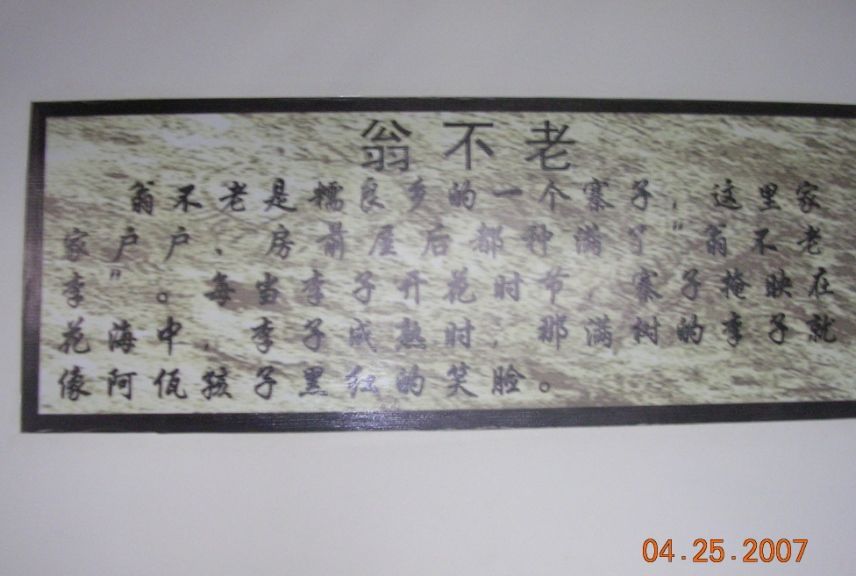 翁不老
翁不老是糯良乡的一个寨子，这里家
家户户、房前屋后都种满了"翁不老
李"。每当李子开花时节，寨子掩映在
花海中，李子成熟时，那满树的李子就
像阿佤孩子黑红的笑脸。
04.25.2007